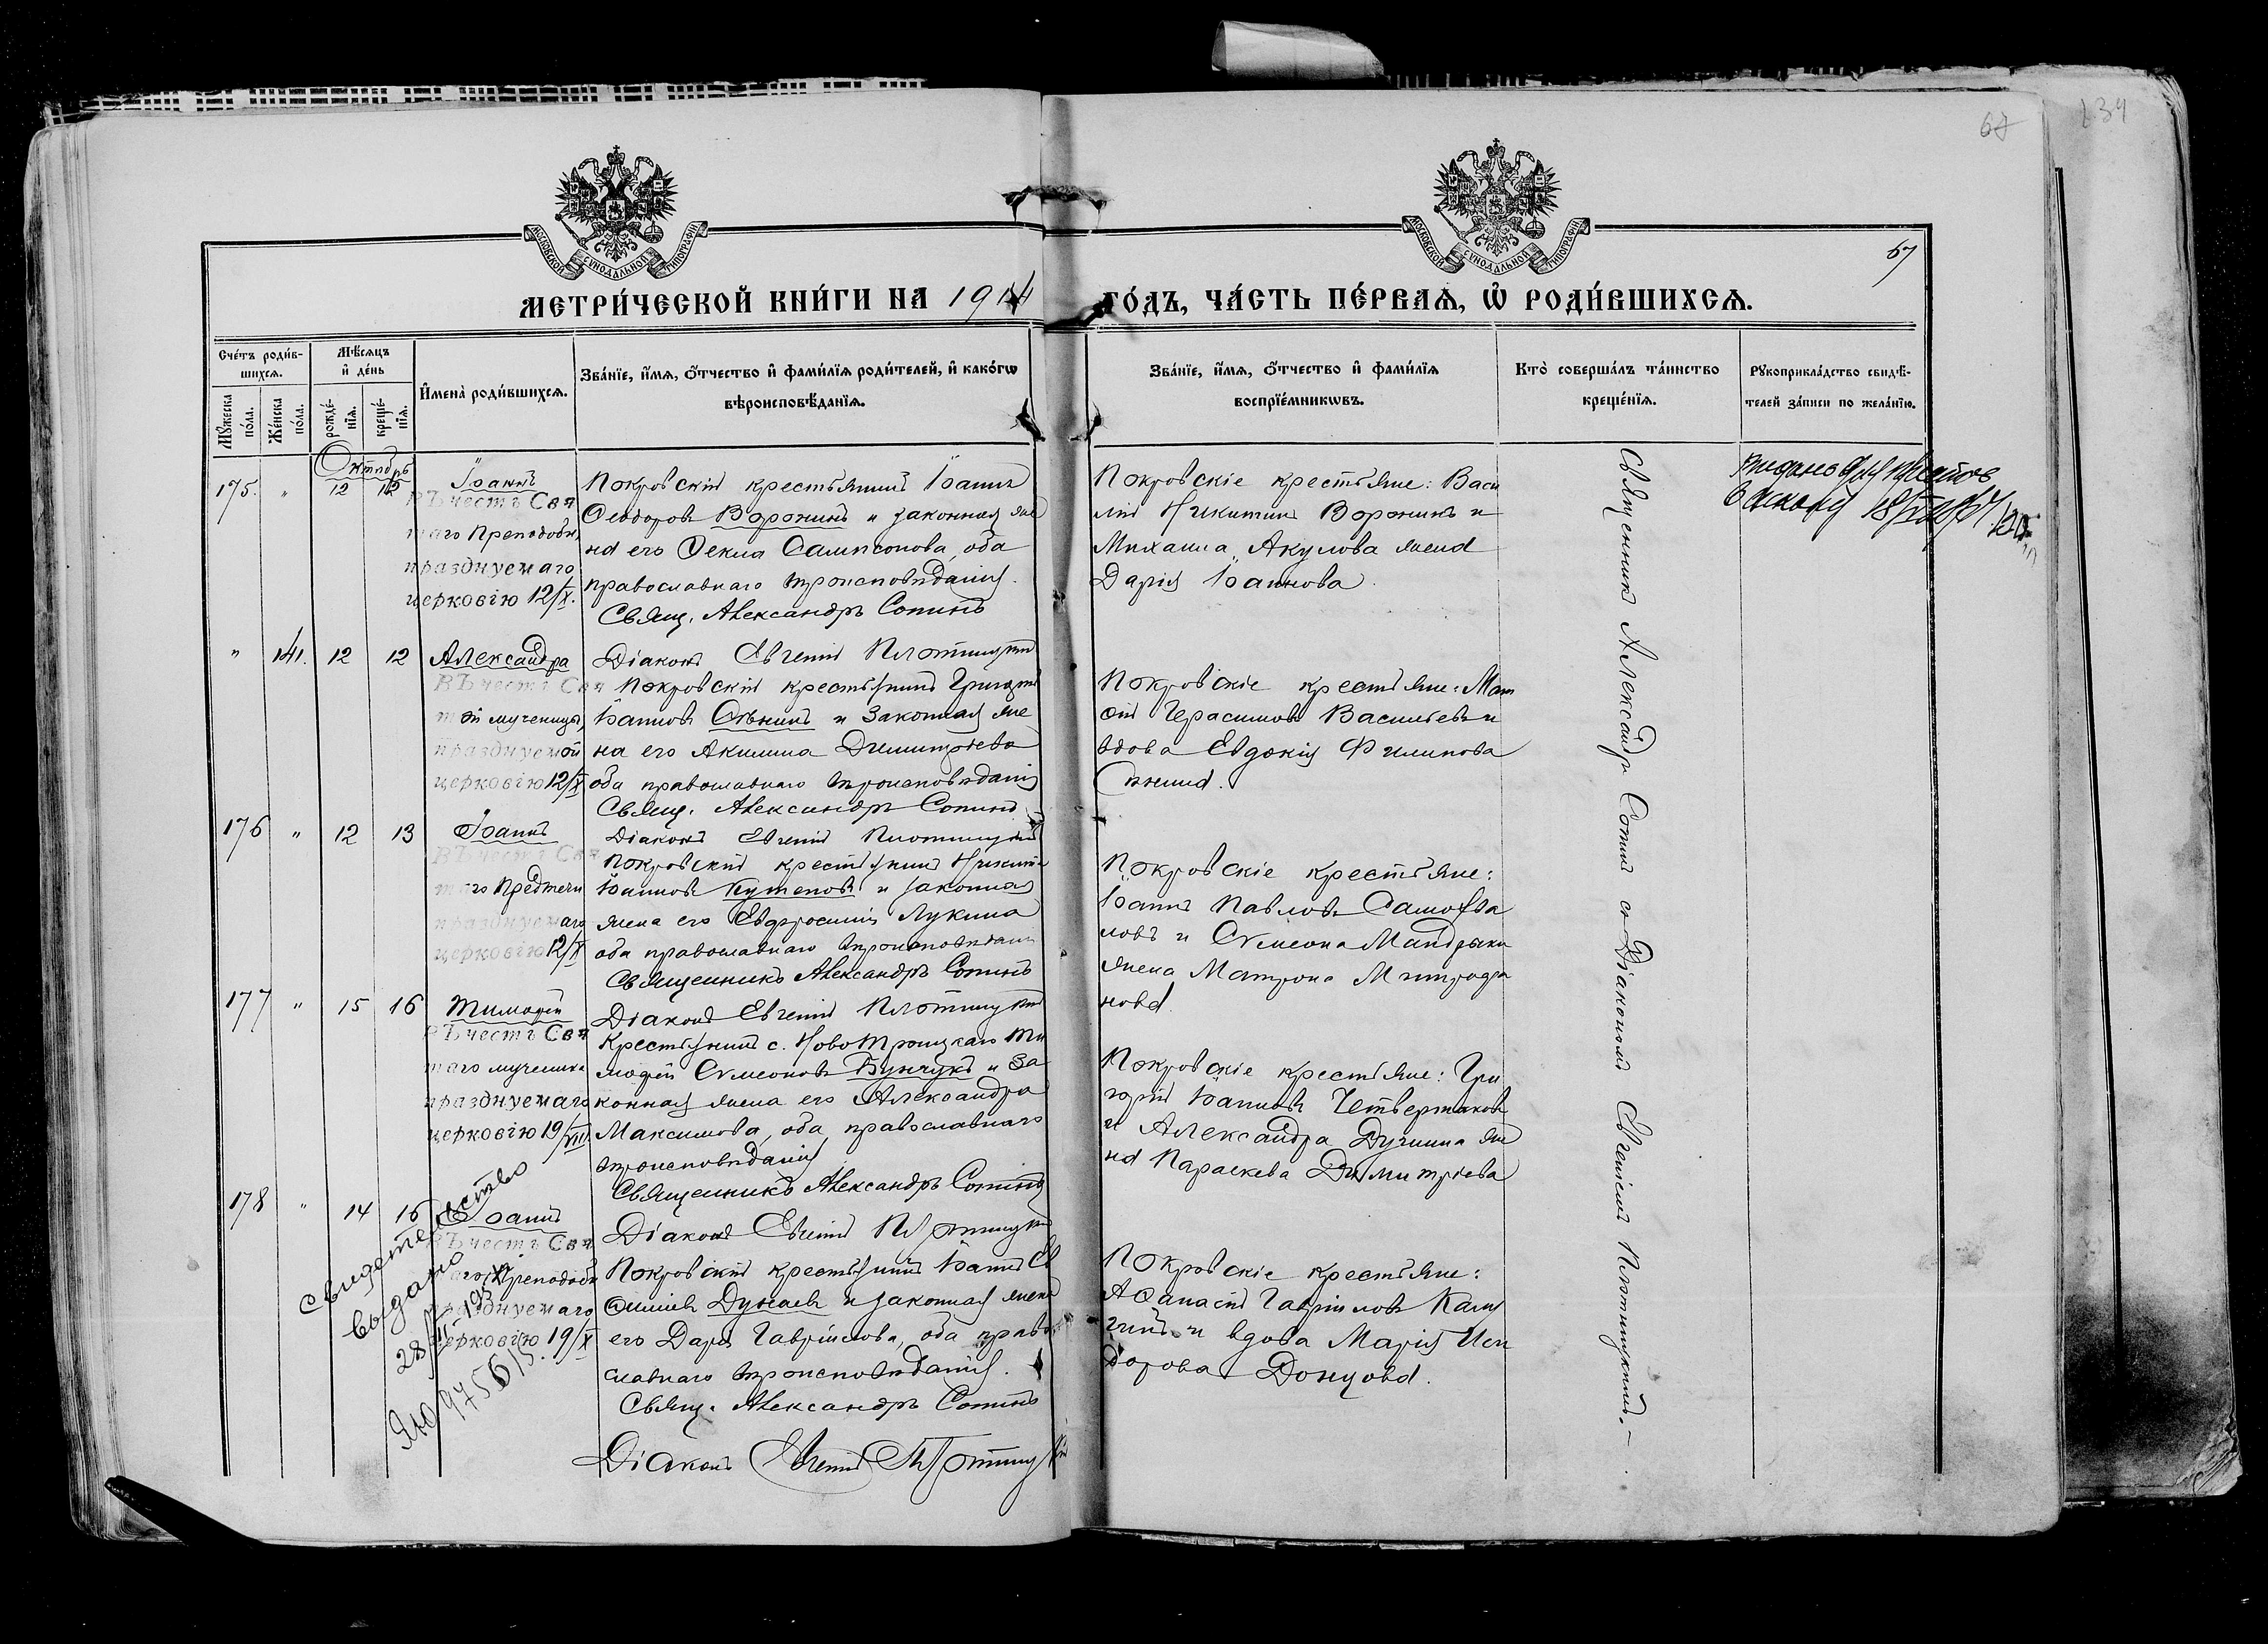 134
67
67
МОСКОВСКОЙ СѴНОДАЛЬНОЙ ТИПОГРАФІИ
МОСКОВСКОЙ СѴНОДАЛЬНОЙ ТИПОГРАФІИ
МЕТРИ́ЧЕСКОЙ КНИ́ГИ НА 1914
ГО́ДЪ, ЧА́СТЬ ПЕ́РВАѦ, Ѽ РОДИ́ВШИХСѦ.
Сче́тъ роди́в-
шихсѧ.
Мꙋ́жеска по́ла.
Же́нска по́ла.
Мѣ́сѧцъ
и҆ де́нь
рожде́-
нїѧ.
креще́-
нїѧ.
И҆мена̀ роди́вшихсѧ.
Зва́нїе, и҆́мѧ, ѻ҆́тчество и҆ фами́лїѧ роди́телей, и҆ како́гѡ
вѣроисповѣ́данїѧ.
Зва́нїе, и҆́мѧ, ѻ҆́тчество и҆ фами́лїѧ
воспрїе́мникѡвъ.
Кто̀ соверша́лъ та́инство
креще́нїѧ.
Рꙋкоприкла́дство свидѣ́-
телей за́писи по жела́нїю.
Октябрь
175. " 12 12 Іоаннъ
ВЪ честь Свя
таго Преподобн,
празднуемаго
церковію 12/X.
Покровскій крестьянинъ Іоаннъ
Ѳеодоровъ Воронинъ и законная же
на его Ѳекла Сампсонова, оба
православнаго вѣроисповѣданія.
Свящ. Александръ Сопинъ
Діаконъ Евгеній Плотницкій
Покровскіе крестьяне: Васи
лій Никитинъ Воронинъ и
Михаила Акулова жена
Дарія Іоаннова.
18/
" 141. 12 12 Александра
ВЪ честь Свя
той мученицы,
празднуемой
церковію 12/X
Покровскій крестьянинъ Григорій
Іоанновъ Сѣнинъ и законная же
на его Акилина Димитріева
оба православнаго вѣроисповѣданія
Свящ. Александръ Сопинъ
Діаконъ Евгеній Плотницкій
Покровскіе крестьяне: Мат
ѳій Герасимовъ Васильевъ и
вдова Евдокія Филипова
176 " 12 13 Іоаннъ
ВЪ честь Свя
таго Предтечи
празднуемаго
церковію 12/X
Покровскій крестьянинъ Никита
Іоанновъ Кутеповъ и законная
жена его Евфросинія Лукина
оба православнаго вѣроисповѣданія
Священникъ Александръ Сопинъ
Діаконъ Евгеній Плотницкій
Покровскіе крестьяне:
Іоаннъ Павловъ Самойва
ловъ и Сѵмеона Мандрыки
жена Матрона Митрофа
нова.
177 " 15 16 Тимоѳей
ВЪ честь Свя
таго мученика
празднуемаго
церковію 19/VIII
Крестьянинъ с. Ново Троицкаго Ти
моѳей Сѵмеоновъ Бунчукъ и за
конная жена его Александра
Максимова, оба православнаго
вѣроисповѣданія
Священникъ Александръ Сопинъ
Діаконъ Евгеній Плотницкій
Покровскіе крестьяне: Гри
горій Іоанновъ Четвертаковъ
и Александра Дучина же
на Параскева Димитріева
178 " 14 16 Іоаннъ
ВЪ честь Свя
таго Преподобн
празднуемаго
церковію 19/X
Покровскій крестьянинъ Іоаннъ Ев
ѳиміевъ Дунаевъ и законная жена
его Дарія Гавріилова, оба право
славнаго вѣроисповѣданія.
Свящ. Александръ Сопинъ
Діаконъ Евгеній Плотницкій
Покровскіе крестьяне:
Аѳанасій Гавріиловъ Калу
гинъ и вдова Марія Иси
дорова Донцова.
Свидетельство
выдано
Священникъ Александръ Сопинъ съ Діакономъ Евгеніемъ Плотницкимъ. —